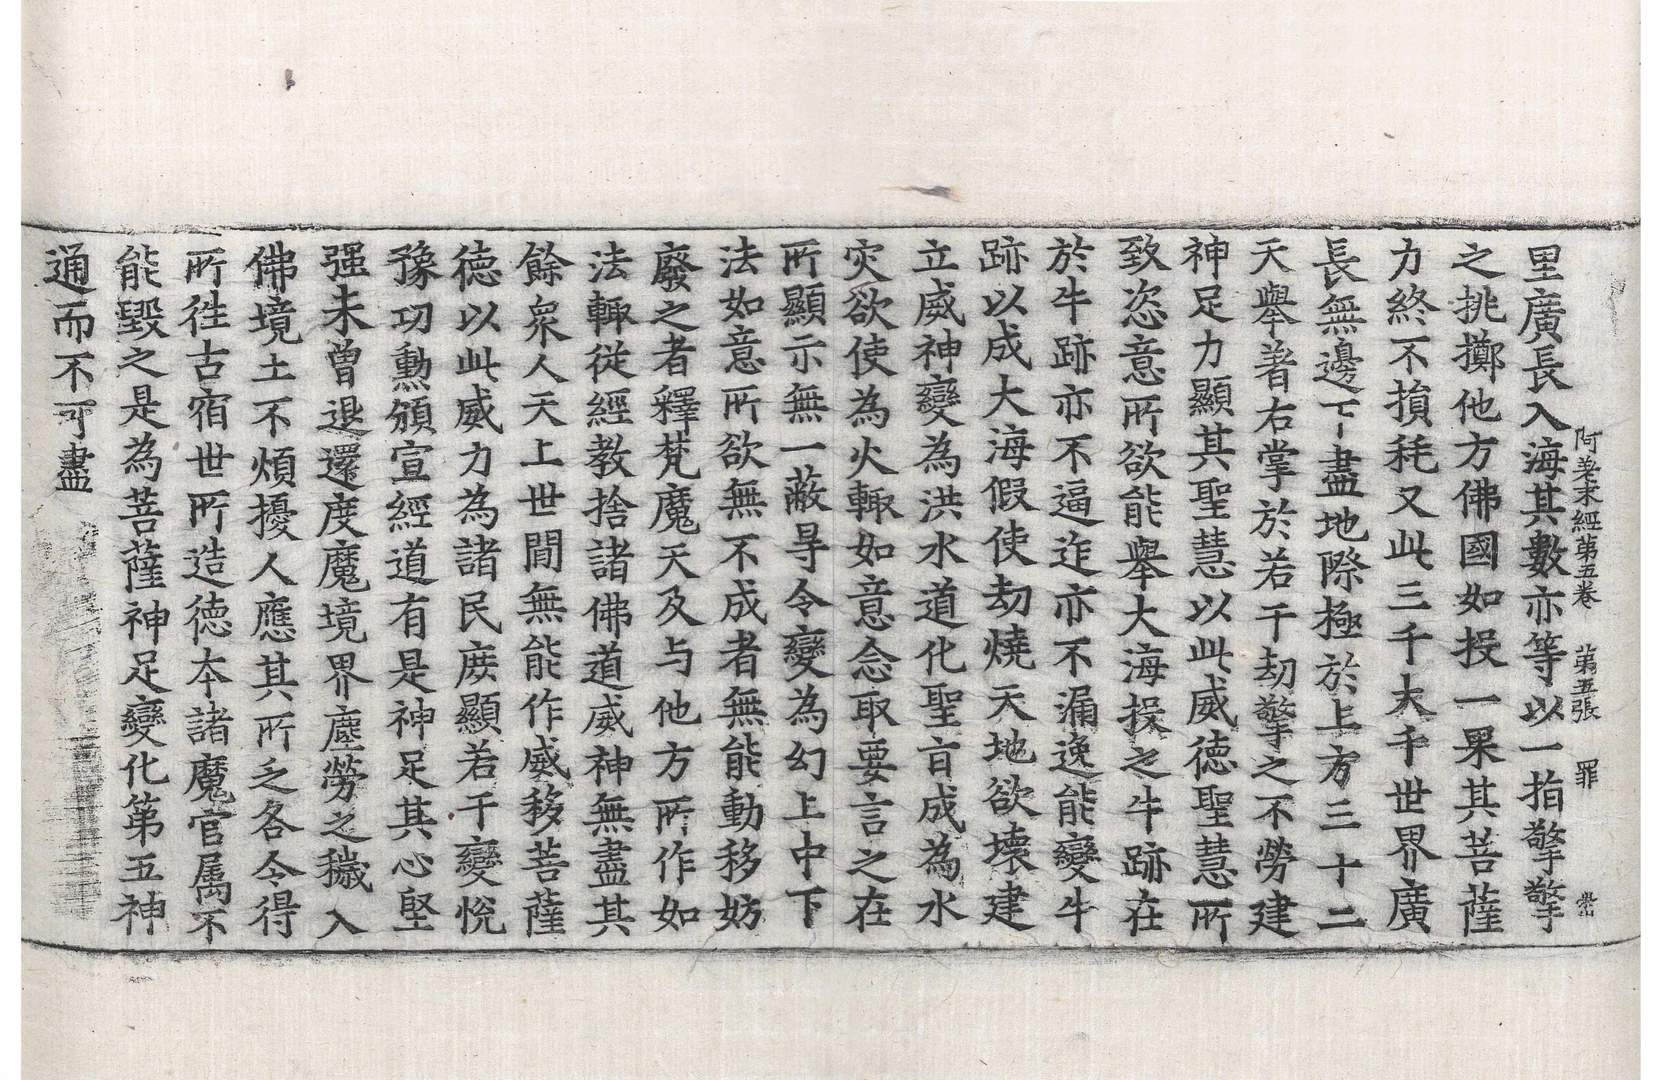 阿差末經第五卷 第五張 罪
里廣長入海其數亦等以一指擎擎
之挑擲他方佛國如投一果其菩薩
力終不損耗又此三千大千世界廣
長無邊下盡地際極於上方三十二
天舉著右掌於若干劫擎之不勞建
神足力顯其聖慧以此威德聖慧所
致恣意所欲能舉大海投之牛跡在
於牛跡亦不逼迮亦不漏逸能變牛
跡以成大海假使劫燒天地欲壞建
立威神變為洪水道化聖旨成為水
灾欲使為火輙如意念取要言之在
所顯示無一蔽㝵令變為幻上中下
法如意所欲無不成者無能動移妨
廢之者釋梵魔天及与他方所作如
法輙從經教捨諸佛道威神無盡其
餘衆人天上世間無能作威移菩薩
德以此威力為諸民庶顯若干變悅
豫功勳頒宣經道有是神足其心堅
强未曾退還度魔境界塵勞之穢入
佛境土不煩擾人應其所乏各令得
所徃古宿世所造德本諸魔官属不
能毀之是為菩薩神足變化第五神
通而不可盡